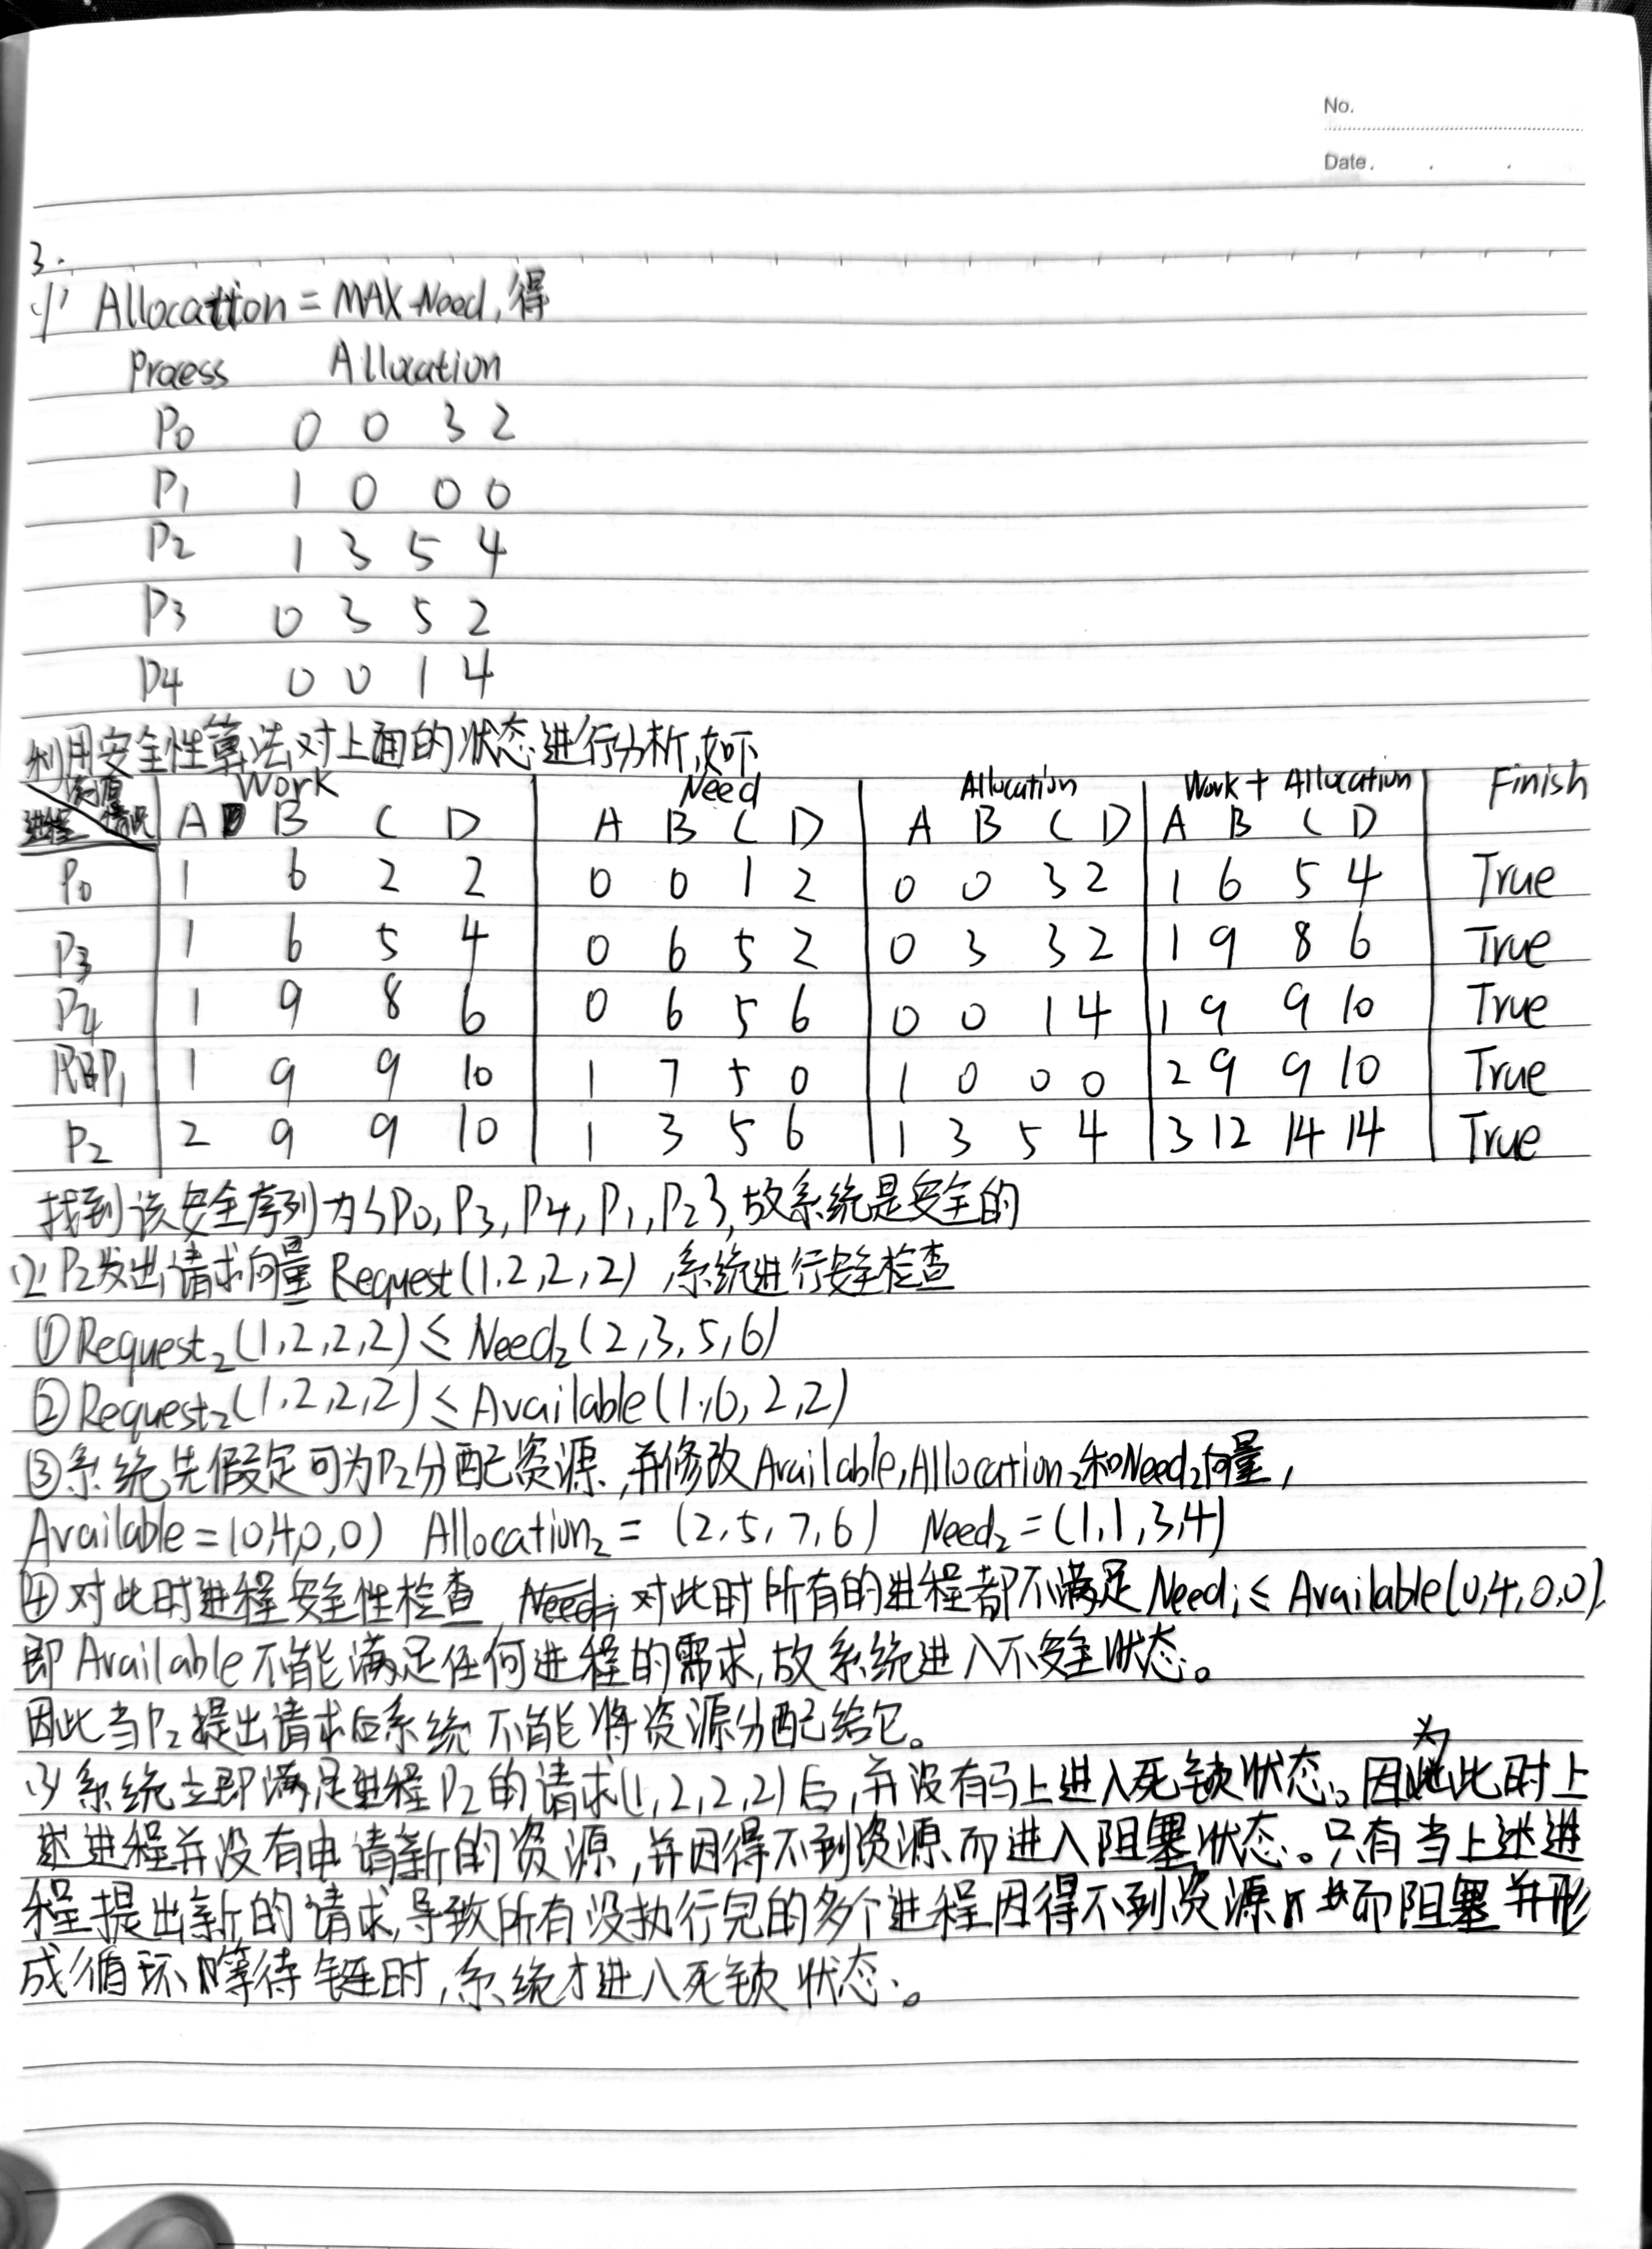 No.
Date.
3.
(1) Allocation = MAX-Need, 得
Process Allocation
P0 0 0 3 2
P1 1 0 0 0
P2 1 3 5 4
P3 0 3 5 2
P4 0 0 1 4
利用安全性算法对上面的状态进行分析,如下
资源 情况 进程 Work Need Allocation Work + Allocation Finish
A B C D A B C D A B C D A B C D
P0 1 6 2 2 0 0 1 2 0 0 3 2 1 6 5 4 True
P3 1 6 5 4 0 6 5 2 0 3 3 2 1 9 8 6 True
P4 1 9 8 6 0 6 5 6 0 0 1 4 1 9 9 10 True
P1 1 9 9 10 1 7 5 0 1 0 0 0 2 9 9 10 True
P2 2 9 9 10 1 3 5 6 1 3 5 4 3 12 14 14 True
找到该安全序列为{P0, P3, P4, P1, P2}, 故系统是安全的
(2) P2发出请求向量 Request(1,2,2,2) ,系统进行安全检查
①Request2(1,2,2,2) ≤ Need2(2,3,5,6)
②Request2(1,2,2,2) ≤ Available(1,6,2,2)
③系统先假定可为P2分配资源,并修改Available,Allocation2和Need2向量,
Available=(0,4,0,0) Allocation2 = (2,5,7,6) Need2=(1,1,3,4)
④对此时进程安全性检查, 对此时所有的进程都不满足Needi ≤ Available(0,4,0,0).
即Available不能满足任何进程的需求,故系统进入不安全状态。
因此当P2提出请求后系统不能将资源分配给它。
(3) 系统立即满足进程P2的请求(1,2,2,2)后,并没有马上进入死锁状态。因为此时上
述进程并没有申请新的资源,并因得不到资源而进入阻塞状态。只有当上述进
程提出新的请求,导致所有没执行完的多个进程因得不到资源而阻塞并形
成循环等待链时,系统才进入死锁状态。